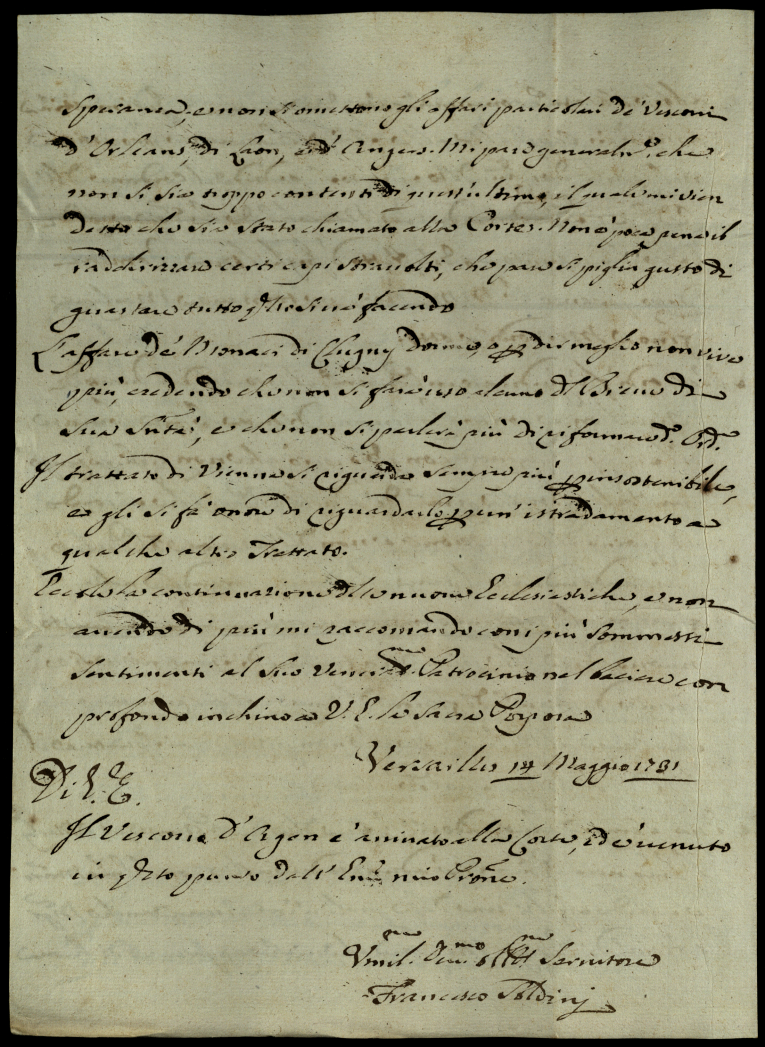 Speranza, e non si omettono gli affari particolari de' Vescovi
d'Orleans, di Laon, e d' Angers. Mi pare generalm.e che
non si sia troppo contenti di quest'ultimo, il quale mi vien
detto che sia stato chiamato alla Corte. Non è poca pena il
raddirizzare certi capi stravolti, che pare si piglin gusto di
guastare tutto q.llo si và facendo
L'affare de' Monaci di Clugny dorme, o p dir meglio non vive
più, credendo che non si farà uso alcuno dl Breve di
Sua Sntà, e che non si parlerà più di riformare d.o Ord.e
Il trattato di Vienna si riguarda sempre più p insostenibile,
e gli si fà onore di riguardarlo p un' istradamento a
qualche altro Trattato.
Eccole la continuazione dlle nuove Ecclesiastiche, e non
avendo di più mi raccomando coni più sommessi
sentimenti al Suo Venerd.mo Patrocinio nel baciare con
profondo inchino a V. E. la Sacra Porpora
Versailles 14 Maggio 1731
Di V. E.
Il Vescovo d'Agen è arrivato alla Corte, ed è venuto
in q.sto punto dall' Em.o mio Prone.
Vmil.mo Servitore
Francesco